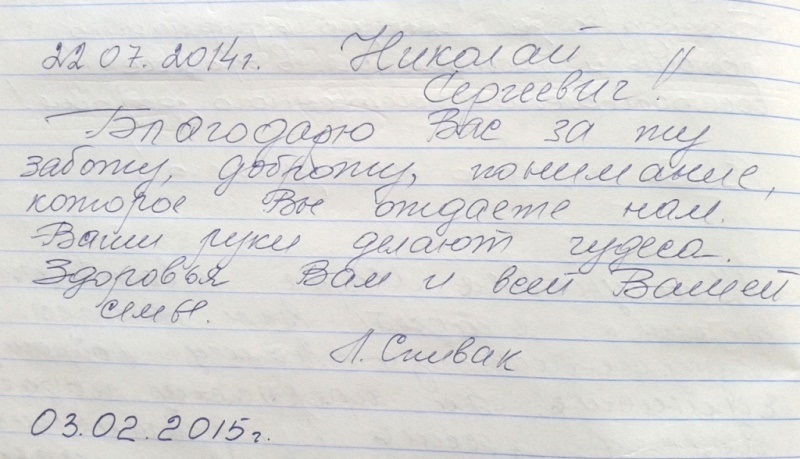 22 07. 2014г. Николай
Сергеевич!!
Благодарю Вас за ту
заботу, доброту, понимание,
которое Вы отдаете нам.
Ваши руки делают чудеса.
Здоровья Вам и всей Вашей
семье.
Л. Спивак
03.02.2015г.